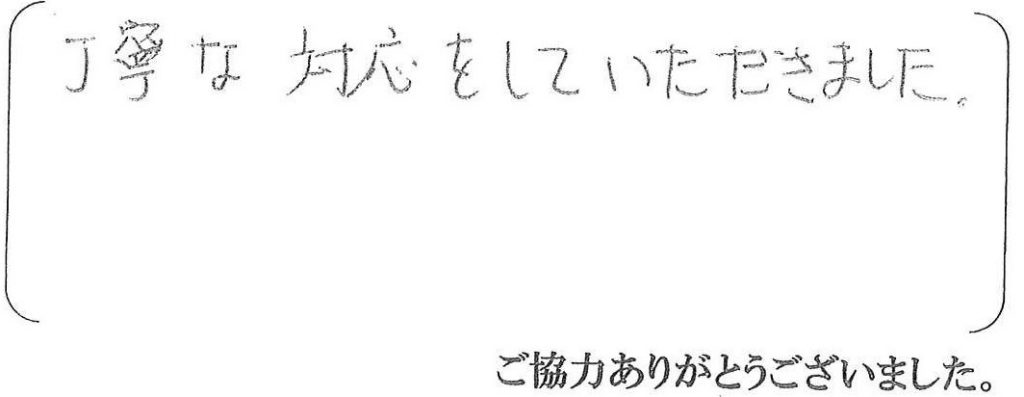 丁寧な対応をしていただきました。
ご協力ありがとうございました。